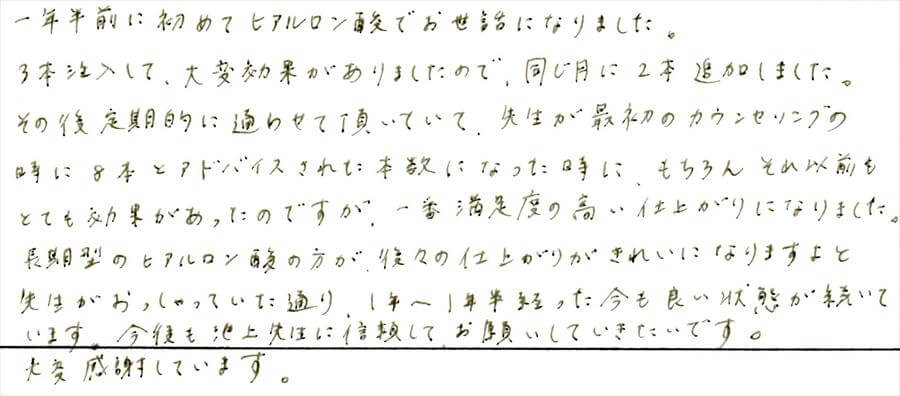 一年半前に初めてヒアルロン酸でお世話になりました。
3本注入して、大変効果がありましたので、同じ月に2本追加しました。
その後定期的に通わせて頂いていて、先生が最初のカウンセリングの
時に8本とアドバイスされた本数になった時に、もちろんそれ以前も
とても効果があったのですが、一番満足度の高い仕上がりになりました。
長期型のヒアルロン酸の方が、後々の仕上がりがきれいになりますよと
先生がおっしゃっていた通り、1年〜1年半経った今も良い状態が続いて
います。今後も池上先生に信頼してお願いしていきたいです。
大変感謝しています。